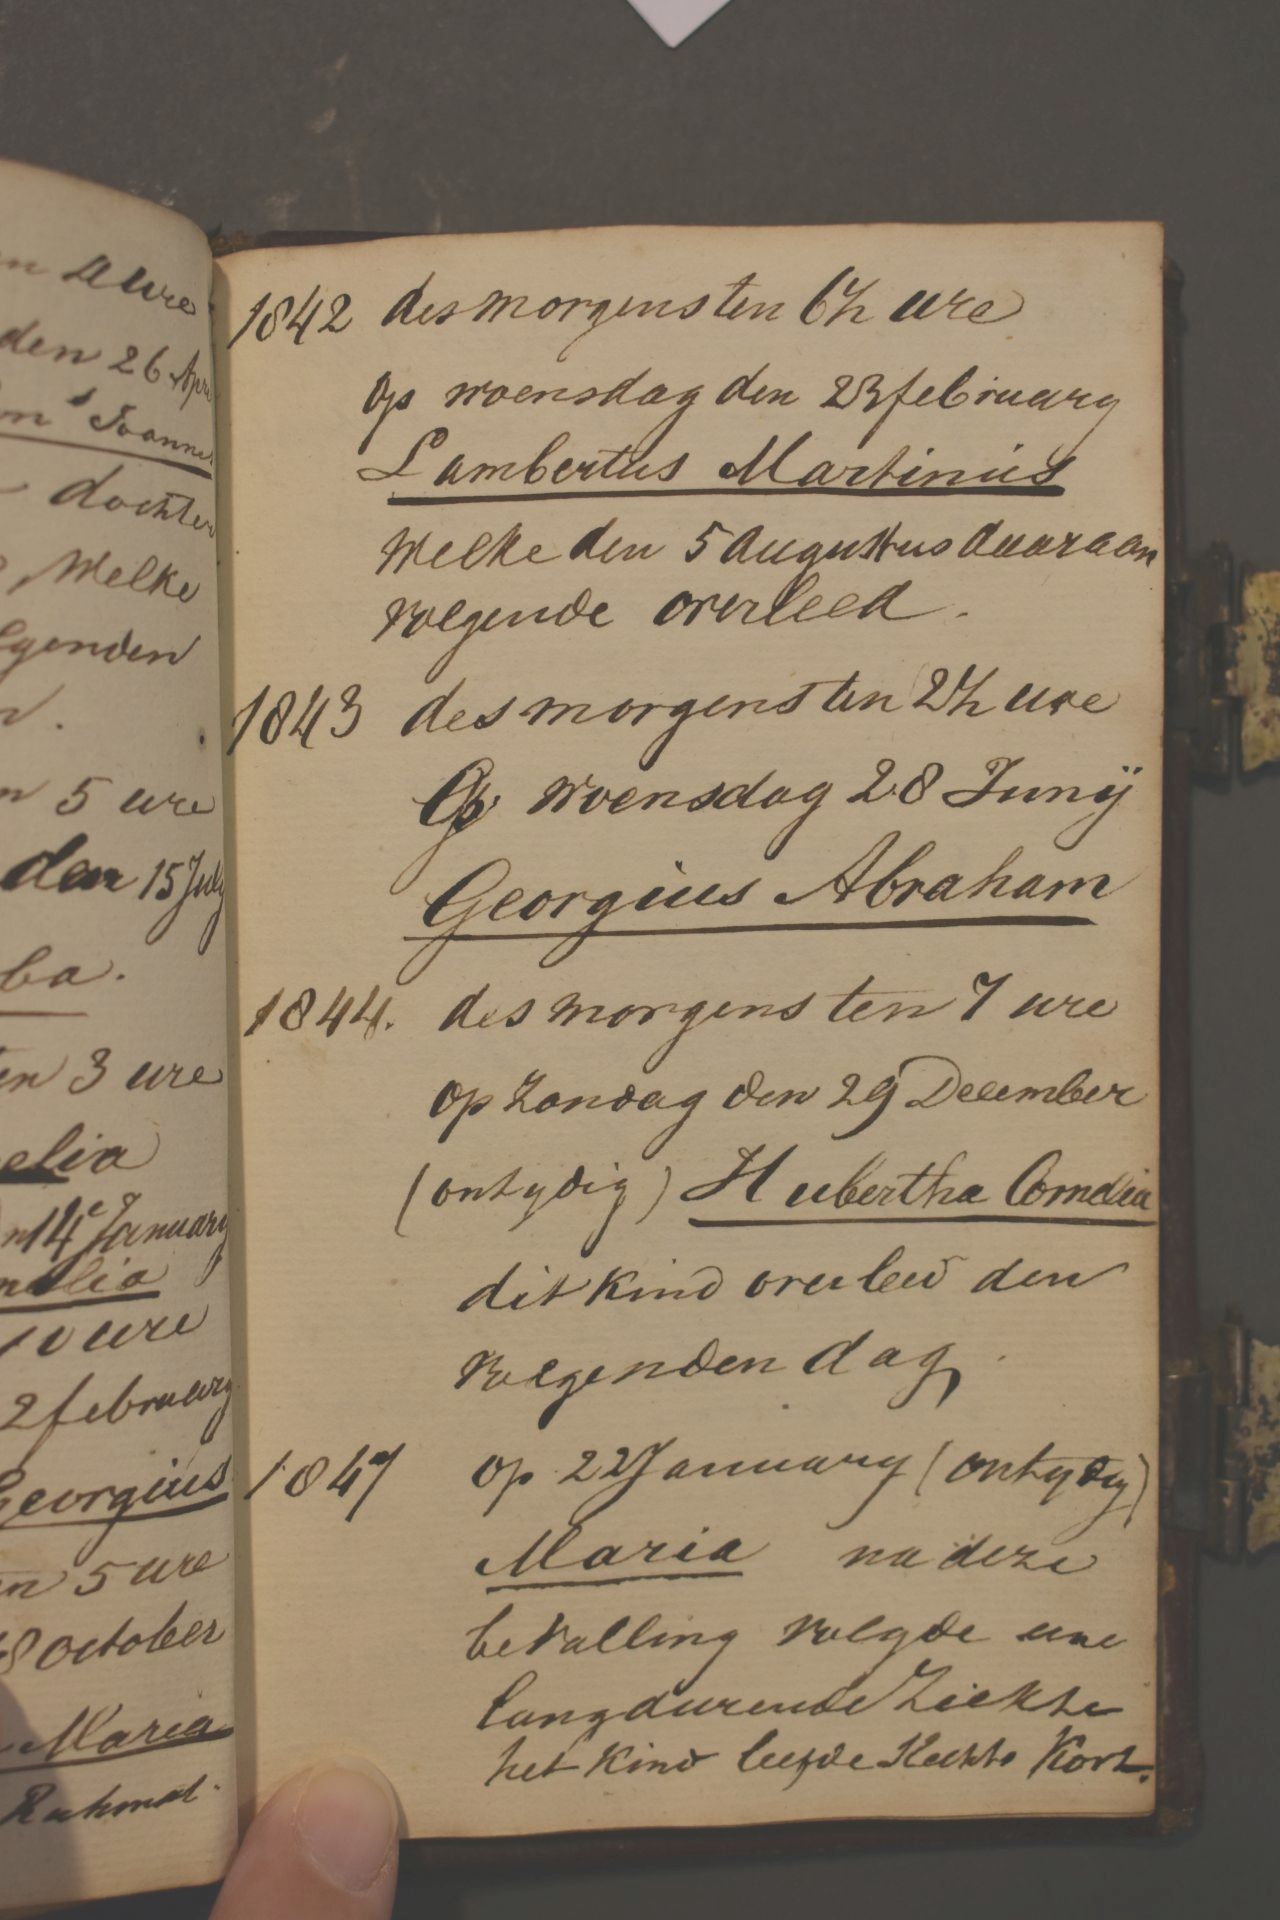 n 4 ure
den 26 Apri
Joannes
dochter
Welke
lgenden
n 5 ure
den 15 July
ba.
en 3 ure
elia
n 14e January
nelia
10 ure
2 february
Georgius
en 5 ure
8 october
Maria
1842 des morgens ten 6½ ure
op woensdag den 23 february
Lambertus Martinus
Welke den 5 Augustus daaraan
volgende overleed.
1843 des morgens ten 2½ ure
Op woensdag 28 Junÿ
Georgius Abraham
1844. des morgens ten 7 ure
op Zondag den 29 December
(ontydig) Hubertha Cornelia
dit kind overleed den
volgenden dag.
1847 op 22 January (ontydig)
Maria na deze
bevalling volgde eene
langdurende Ziekte
het kind leefde slechts kort.